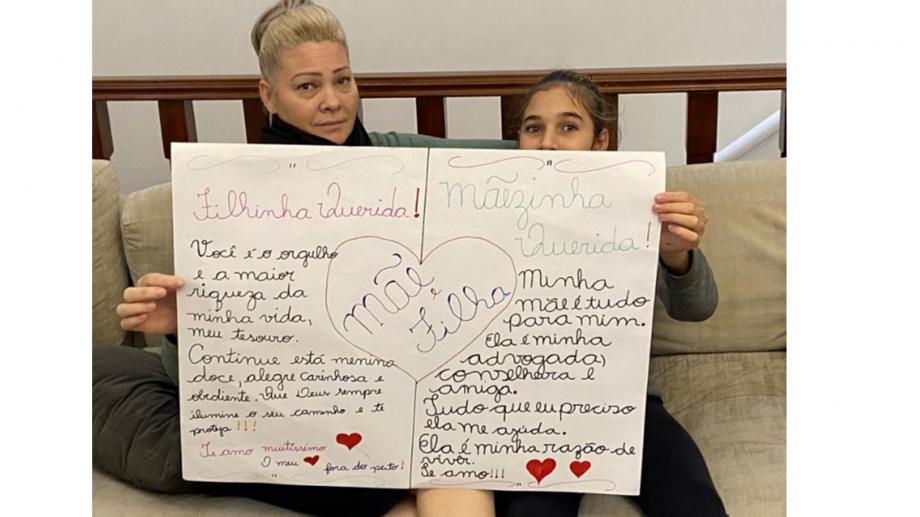 Filhinha Querida!
Você é o orgulho
e a maior
riqueza da
minha vida,
meu tesouro.
Continue está menina
doce, alegre carinhosa e
obdiente. Que Deus sempre
ilumine o seu caminho e te
proteja!!!
Te amo muitíssimo
O meu fora do peito!
Mãe
e
Filha
Mãezinha
Querida!
Minha
mãe é tudo
para mim.
Ela é minha
advogada,
conselheira e
amiga.
Tudo que eu preciso
ela me ajuda.
Ela é minha razão de
viver.
Te amo!!!